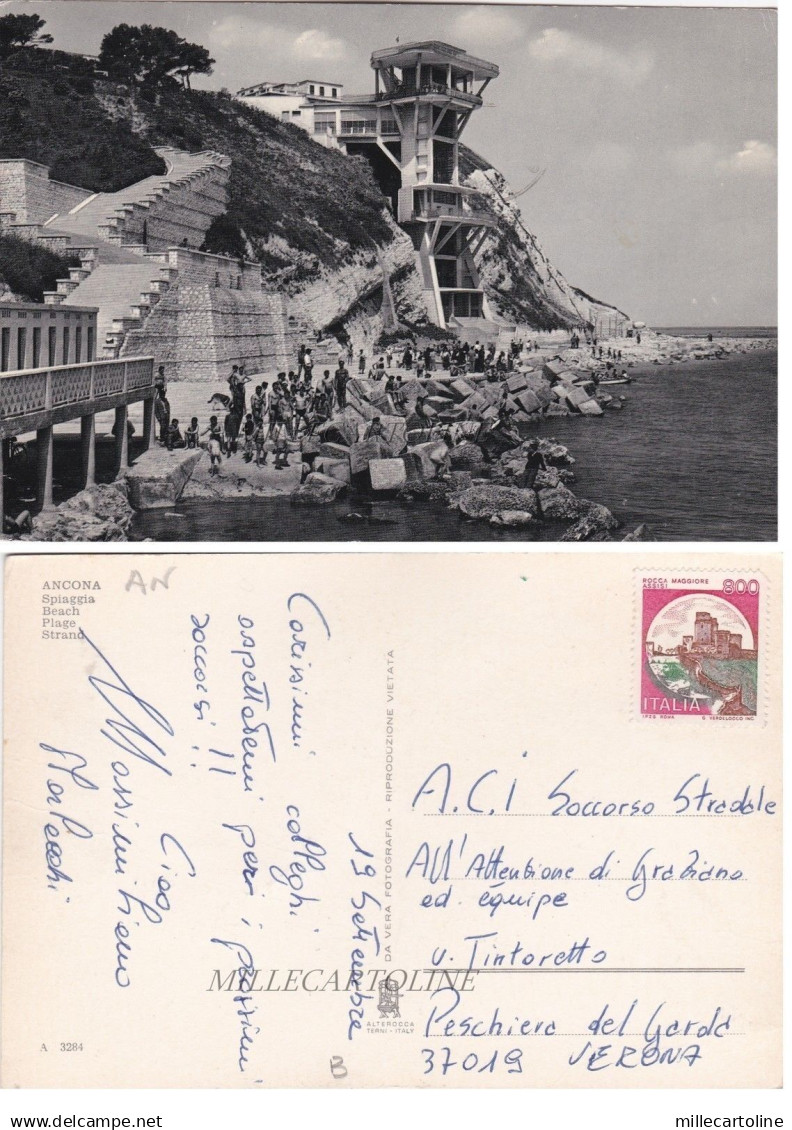 ANCONA
Spiaggia
Beach
Plage
Strand
AN
Carissimi colleghi
aspettatemi per i prossimi
soccorsi !!
Ciao
Massimiliano
19 Settembre
DA VERA FOTOGRAFIA - RIPRODUZIONE VIETATA
ALTEROCCA
TERNI - ITALY
A 3284
B
ROCCA MAGGIORE
ASSISI
800
ITALIA
I.P.Z.S. ROMA
A.C.i Soccorso Stradale
All'Attenzione di Graziano
ed. équipe
v. Tintoretto
Peschiera del Garda
37019 VERONA
MILLECARTOLINE
delcampe.net
millecartoline